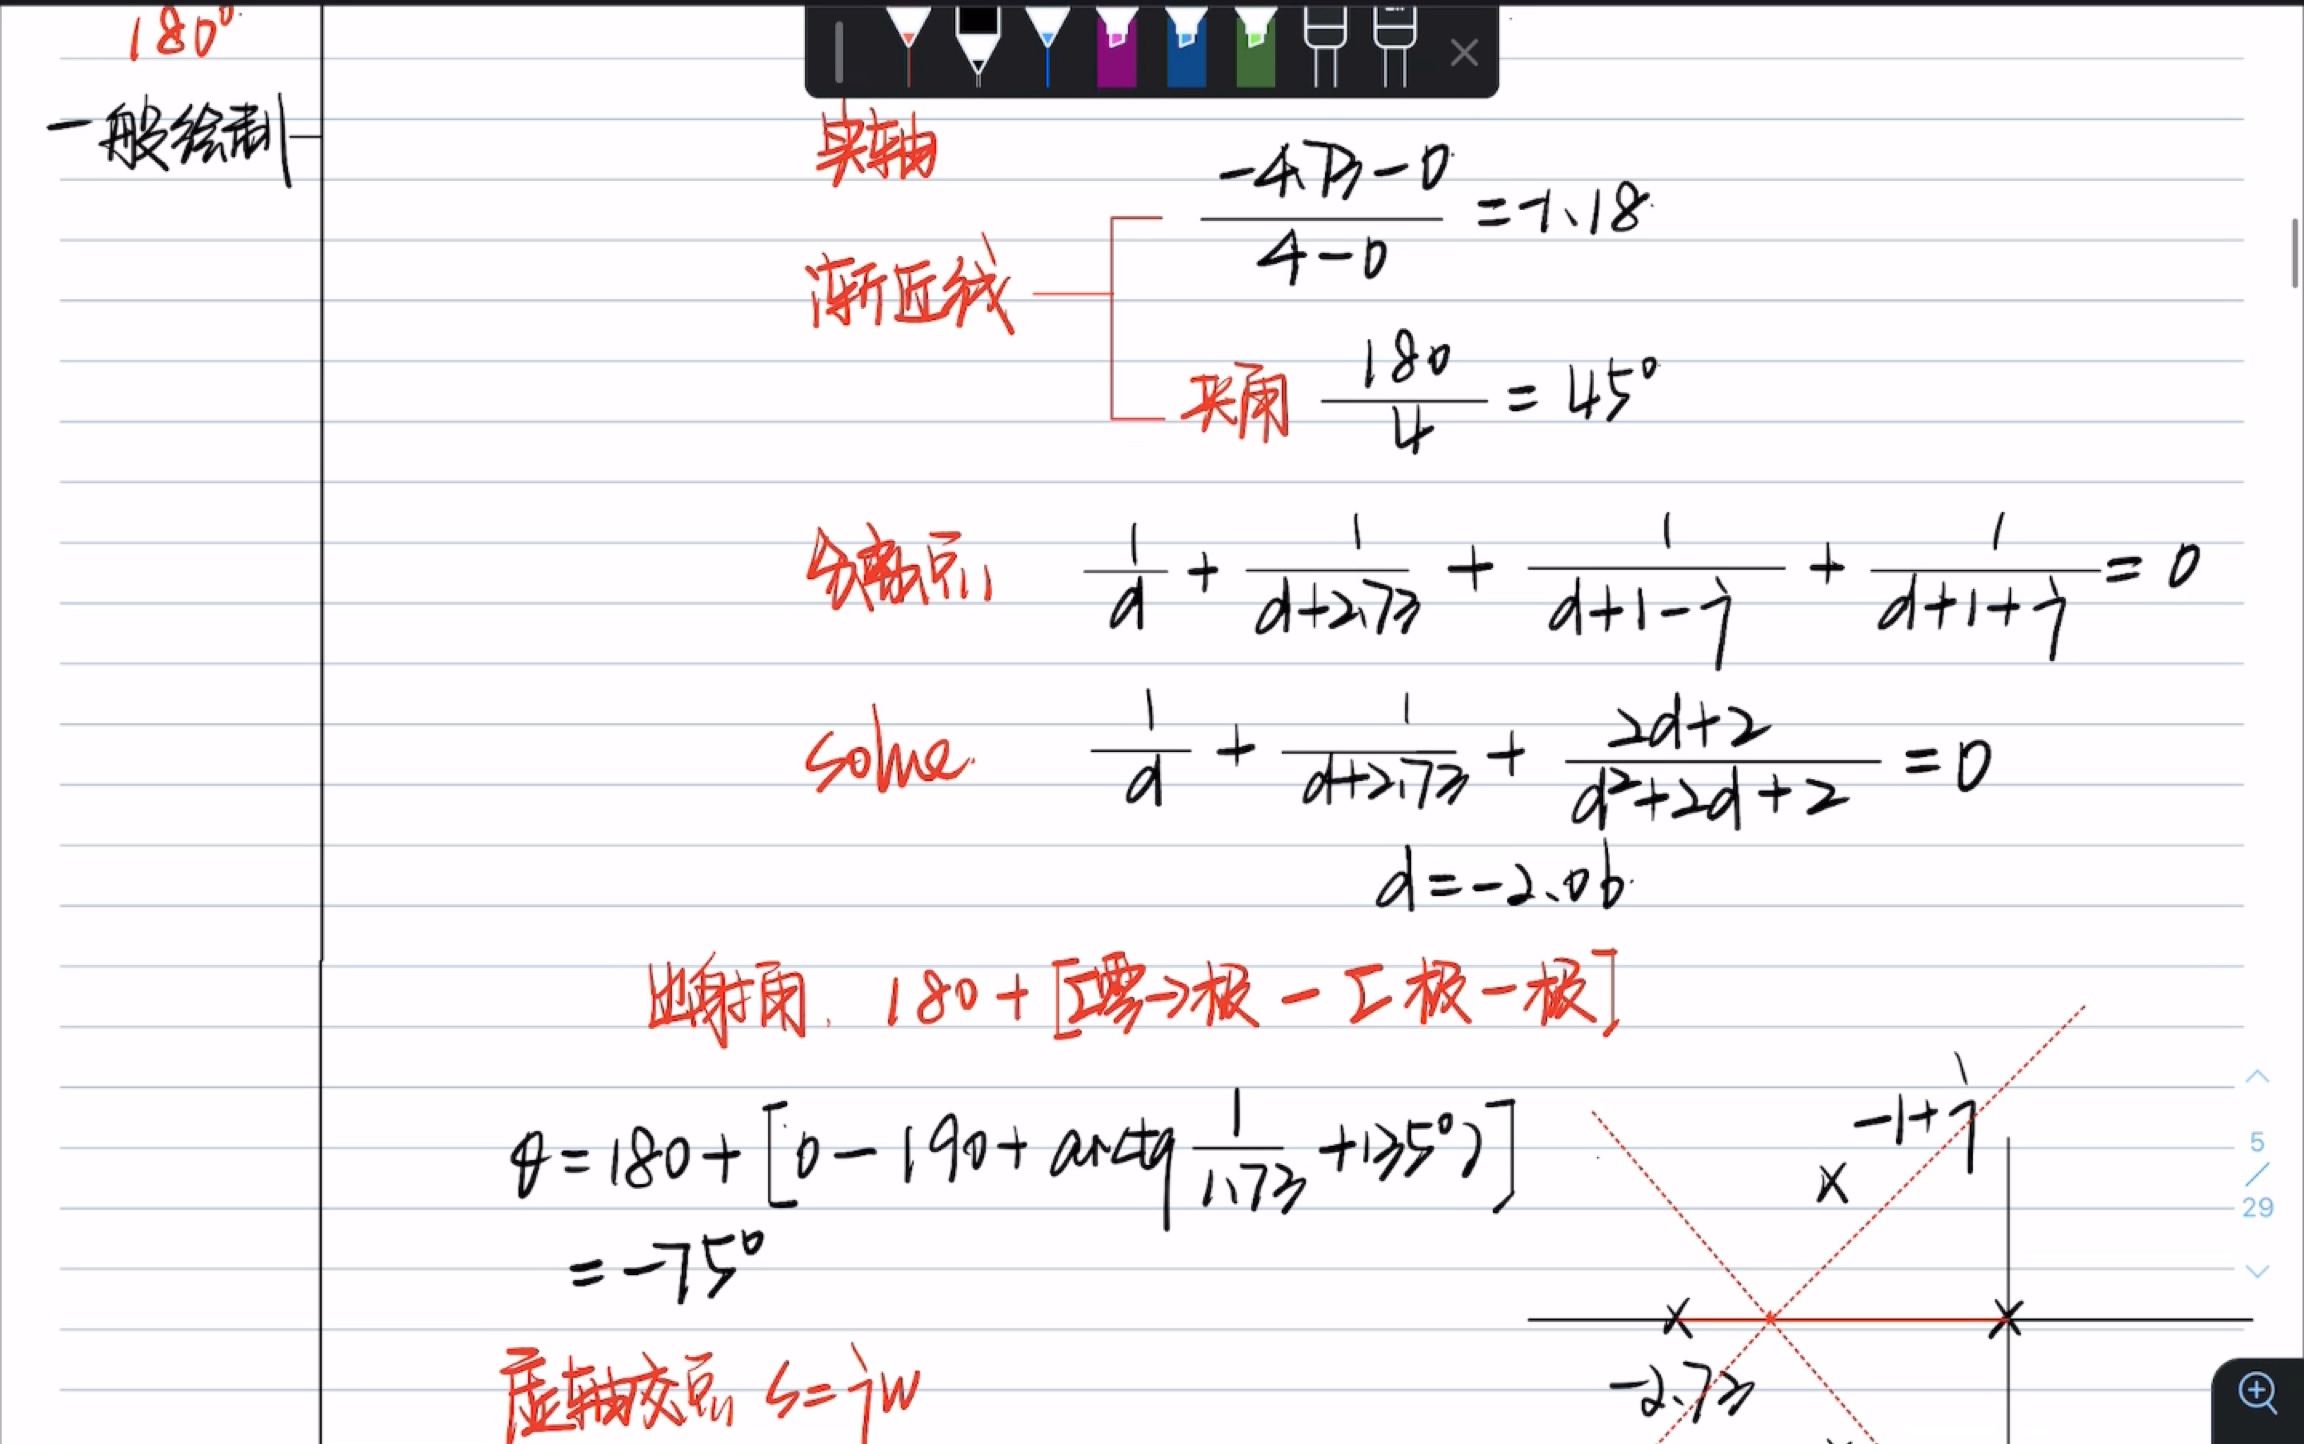 180°
一般绘制
实轴
渐近线
-4.73-0 / 4-0 = -1.18
夹角 180 / 4 = 45°
分离点 1/d + 1/(d+2.73) + 1/(d+1-j) + 1/(d+1+j) = 0
solve 1/d + 1/(d+2.73) + (2d+2)/(d²+2d+2) = 0
d=-2.06
出射角. 180+[Σ零→极 - Σ极-极]
θ=180+[0-(90+arctg 1/1.73 +135°)]
=-75°
-1+j
-2.73
虚轴交点 s=jw
5
/
29